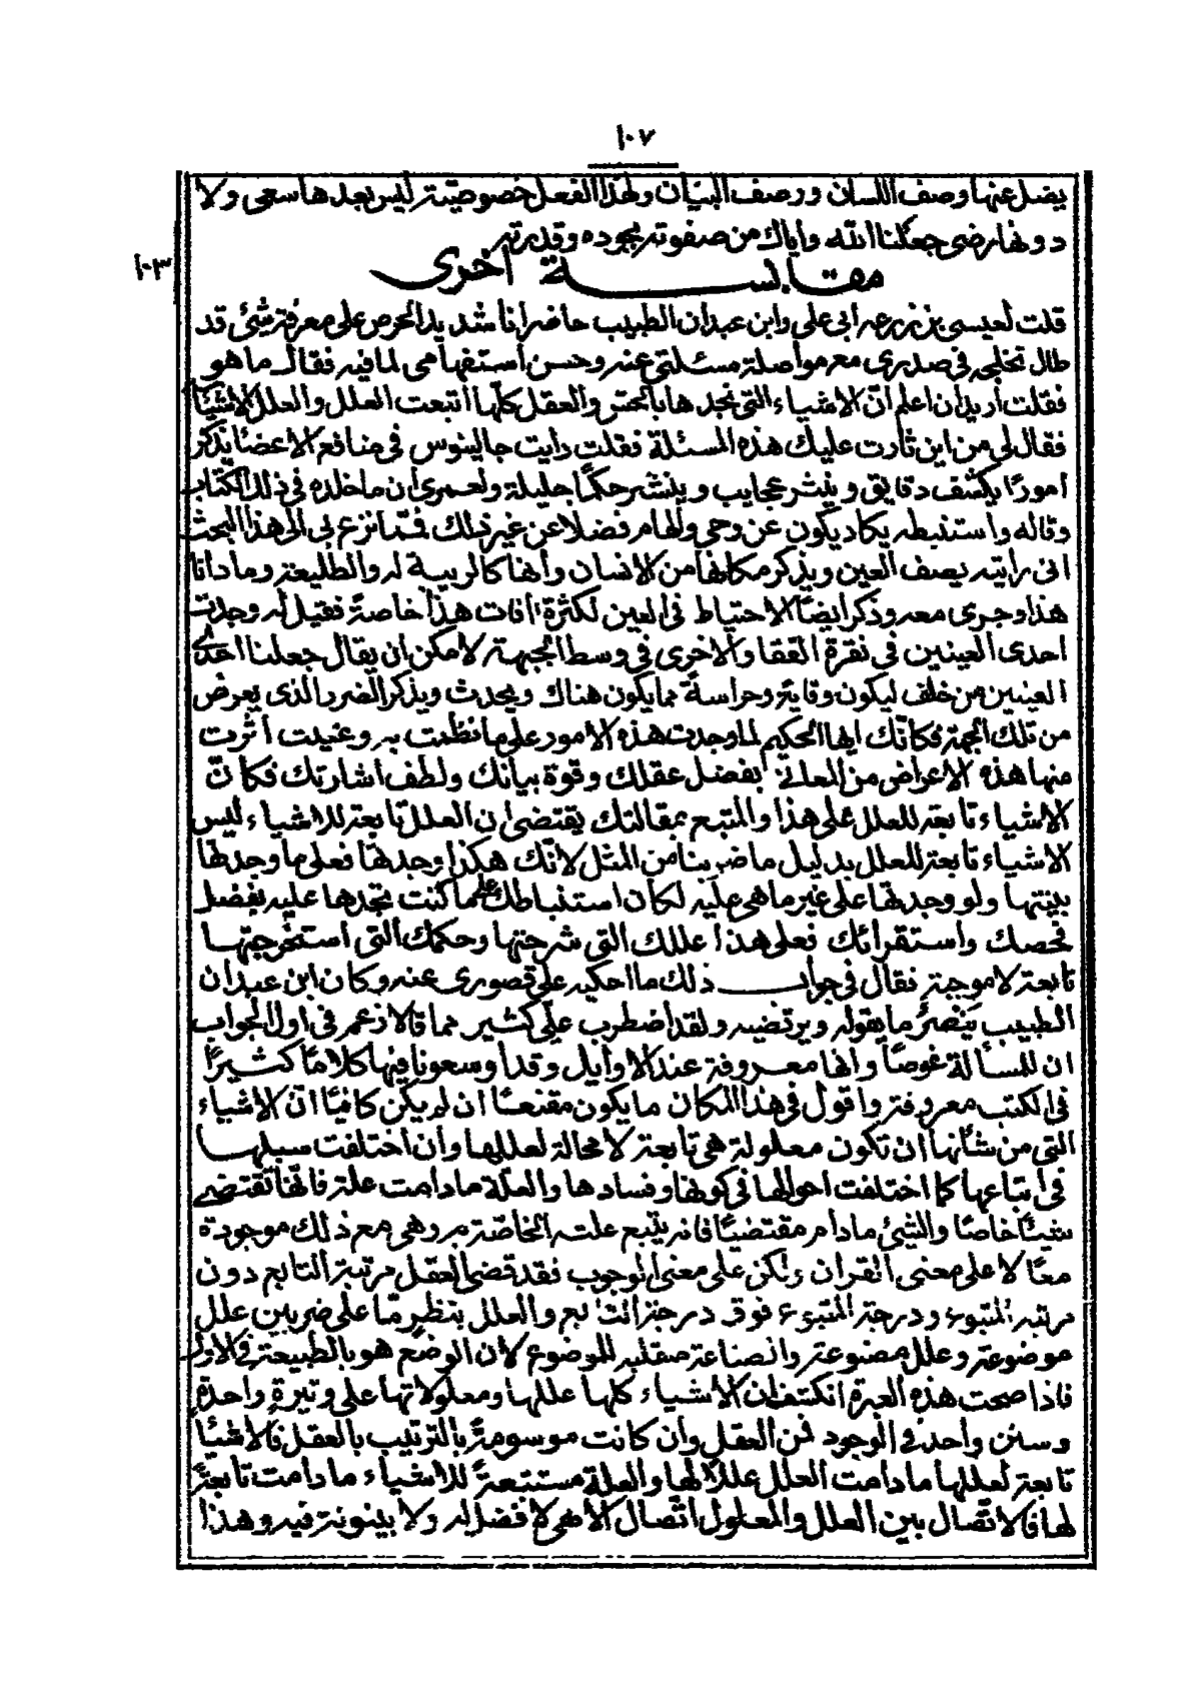 ١٠٧
يضل عنها وصف اللسان ورصف البيان ولهذا الفعل خصوصية ليس بعدها سعى ولا
دونها رضى جعلنا الله واياك من صفوته بجوده وقدرته
١٠٣
مقابسة اخرى
قلت لعيسى بن زرعه ابى على وابن عبدان الطبيب حاضر انا شديد الحرص على معرفة شئ قد
طال تخلجه فى صدرى مع مواصلة مسئلتى عنه وحسن استفهامى لما فيه فقال ما هو
فقلت اريد ان اعلم انّ الاشياء التى نجدها بالحس والعقل كلّها اتبعت العلل والعلل الاشيا
فقال لى من اين ثارت عليك هذه المسئلة فقلت رايت جالينوس فى منافع الاعضا يذكر
امورًا يكشف دقايق وينثر عجايب وينشر حكمًا جليلة ولعمرى ان ما خلده فى ذلك الكتاب
وقاله واستنبطه يكاد يكون عن وحى والهام فضلا عن غير ذلك فمّا نزع بى الى هذا البحث
انى رايته يصف العين ويذكر مكانها من الانسان وانها كالربيبة له والطليعة وما دانا
هذا وجرى معه وذكر ايضًا الاحتياط فى العين لكثرة افات هذا خاصة فقيل له وجدت
احدى العينين فى نقرة القفا والاخرى فى وسط الجبهة لامكن ان يقال جعلنا احدى
العينين من خلف ليكون وقاية وحراسةً مما يكون هناك ويحدث ويذكر الضرر الذى يعرض
من تلك الجهة فكانّك ايها الحكيم لما وجدت هذه الامور على ما نظمت به وعنيت اثرت
منها هذه الاعراض من المعانى بفضل عقلك وقوة بيانك ولطف اشارتك فكانّ
الاشياء تابعة للعلل على هذا والمتبع بمقالتك يقتضى ان العلل تابعة للاشياء ليس
الاشياء تابعة للعلل بدليل ما ضربنا من المثل لانّك هكذا وجدتها فعلى ما وجدتها
بينتها ولو وجدتها على غير ما هى عليه لكان استنباطك على ما كنت تجدها عليه بفضل
فحصك واستقرائك فعلى هذا عللك التى شرحتها وحكمك التى استخرجتها
تابعة لا موجبة فقال فى جواب ذلك ما احكيه على قصورى عنه وكان ابن عبدان
الطبيب ينصر ما يقوله ويرتضيه ولقد اضطرب علّى كثير مما قالا زعم فى اول الجواب
ان للمسألة غوصًا وانها معروفة عند الاوايل وقد اوسعونا فيها كلامًا كثيرًا
فى الكتب معروفة واقول فى هذا المكان ما يكون مقنعًا ان لم يكن كافيًا انّ الاشياء
التى من شأنها ان تكون معلولة هى تابعة لا محالة لعللها وان اختلفت سبلها
فى اتباعها كما اختلفت احوالها فى كونها وفسادها والعلّة ما دامت علة فانّها تقتضى
شيئًا خاصًا والشئ ما دام مقتضيًا فانه يتبع علته الخاصّة به وهى مع ذلك موجودة
معًا لا على معنى القران ولكن على معنى الوجوب فقد قضى العقل مرتبة التابع دون
مرتبة المتبوع ودرجة المتبوع فوق درجة التابع والعلل بنظرٍ مّا على ضربين علل
موضوعة وعلل مصنوعة والصناعة مقلبه للموضوع لان الوضع هو بالطبيعة فى الاول
فاذا صحت هذه العبرة انكشف ان الاشياء كلها عللها ومعلولاتها على وتيرةٍ واحدةٍ
وسنن واحد فى الوجود لمن العقل وان كانت موسومةً بالترتيب بالعقل فالاشيا
تابعة لعللها ما دامت العلل عللًا لها والعلة مستتبعةً للاشياء ما دامت تابعةً
لها فالاتّصال بين العلل والمعلول اتّصال الاهى لا فضل له ولا بينونة فيه وهذا